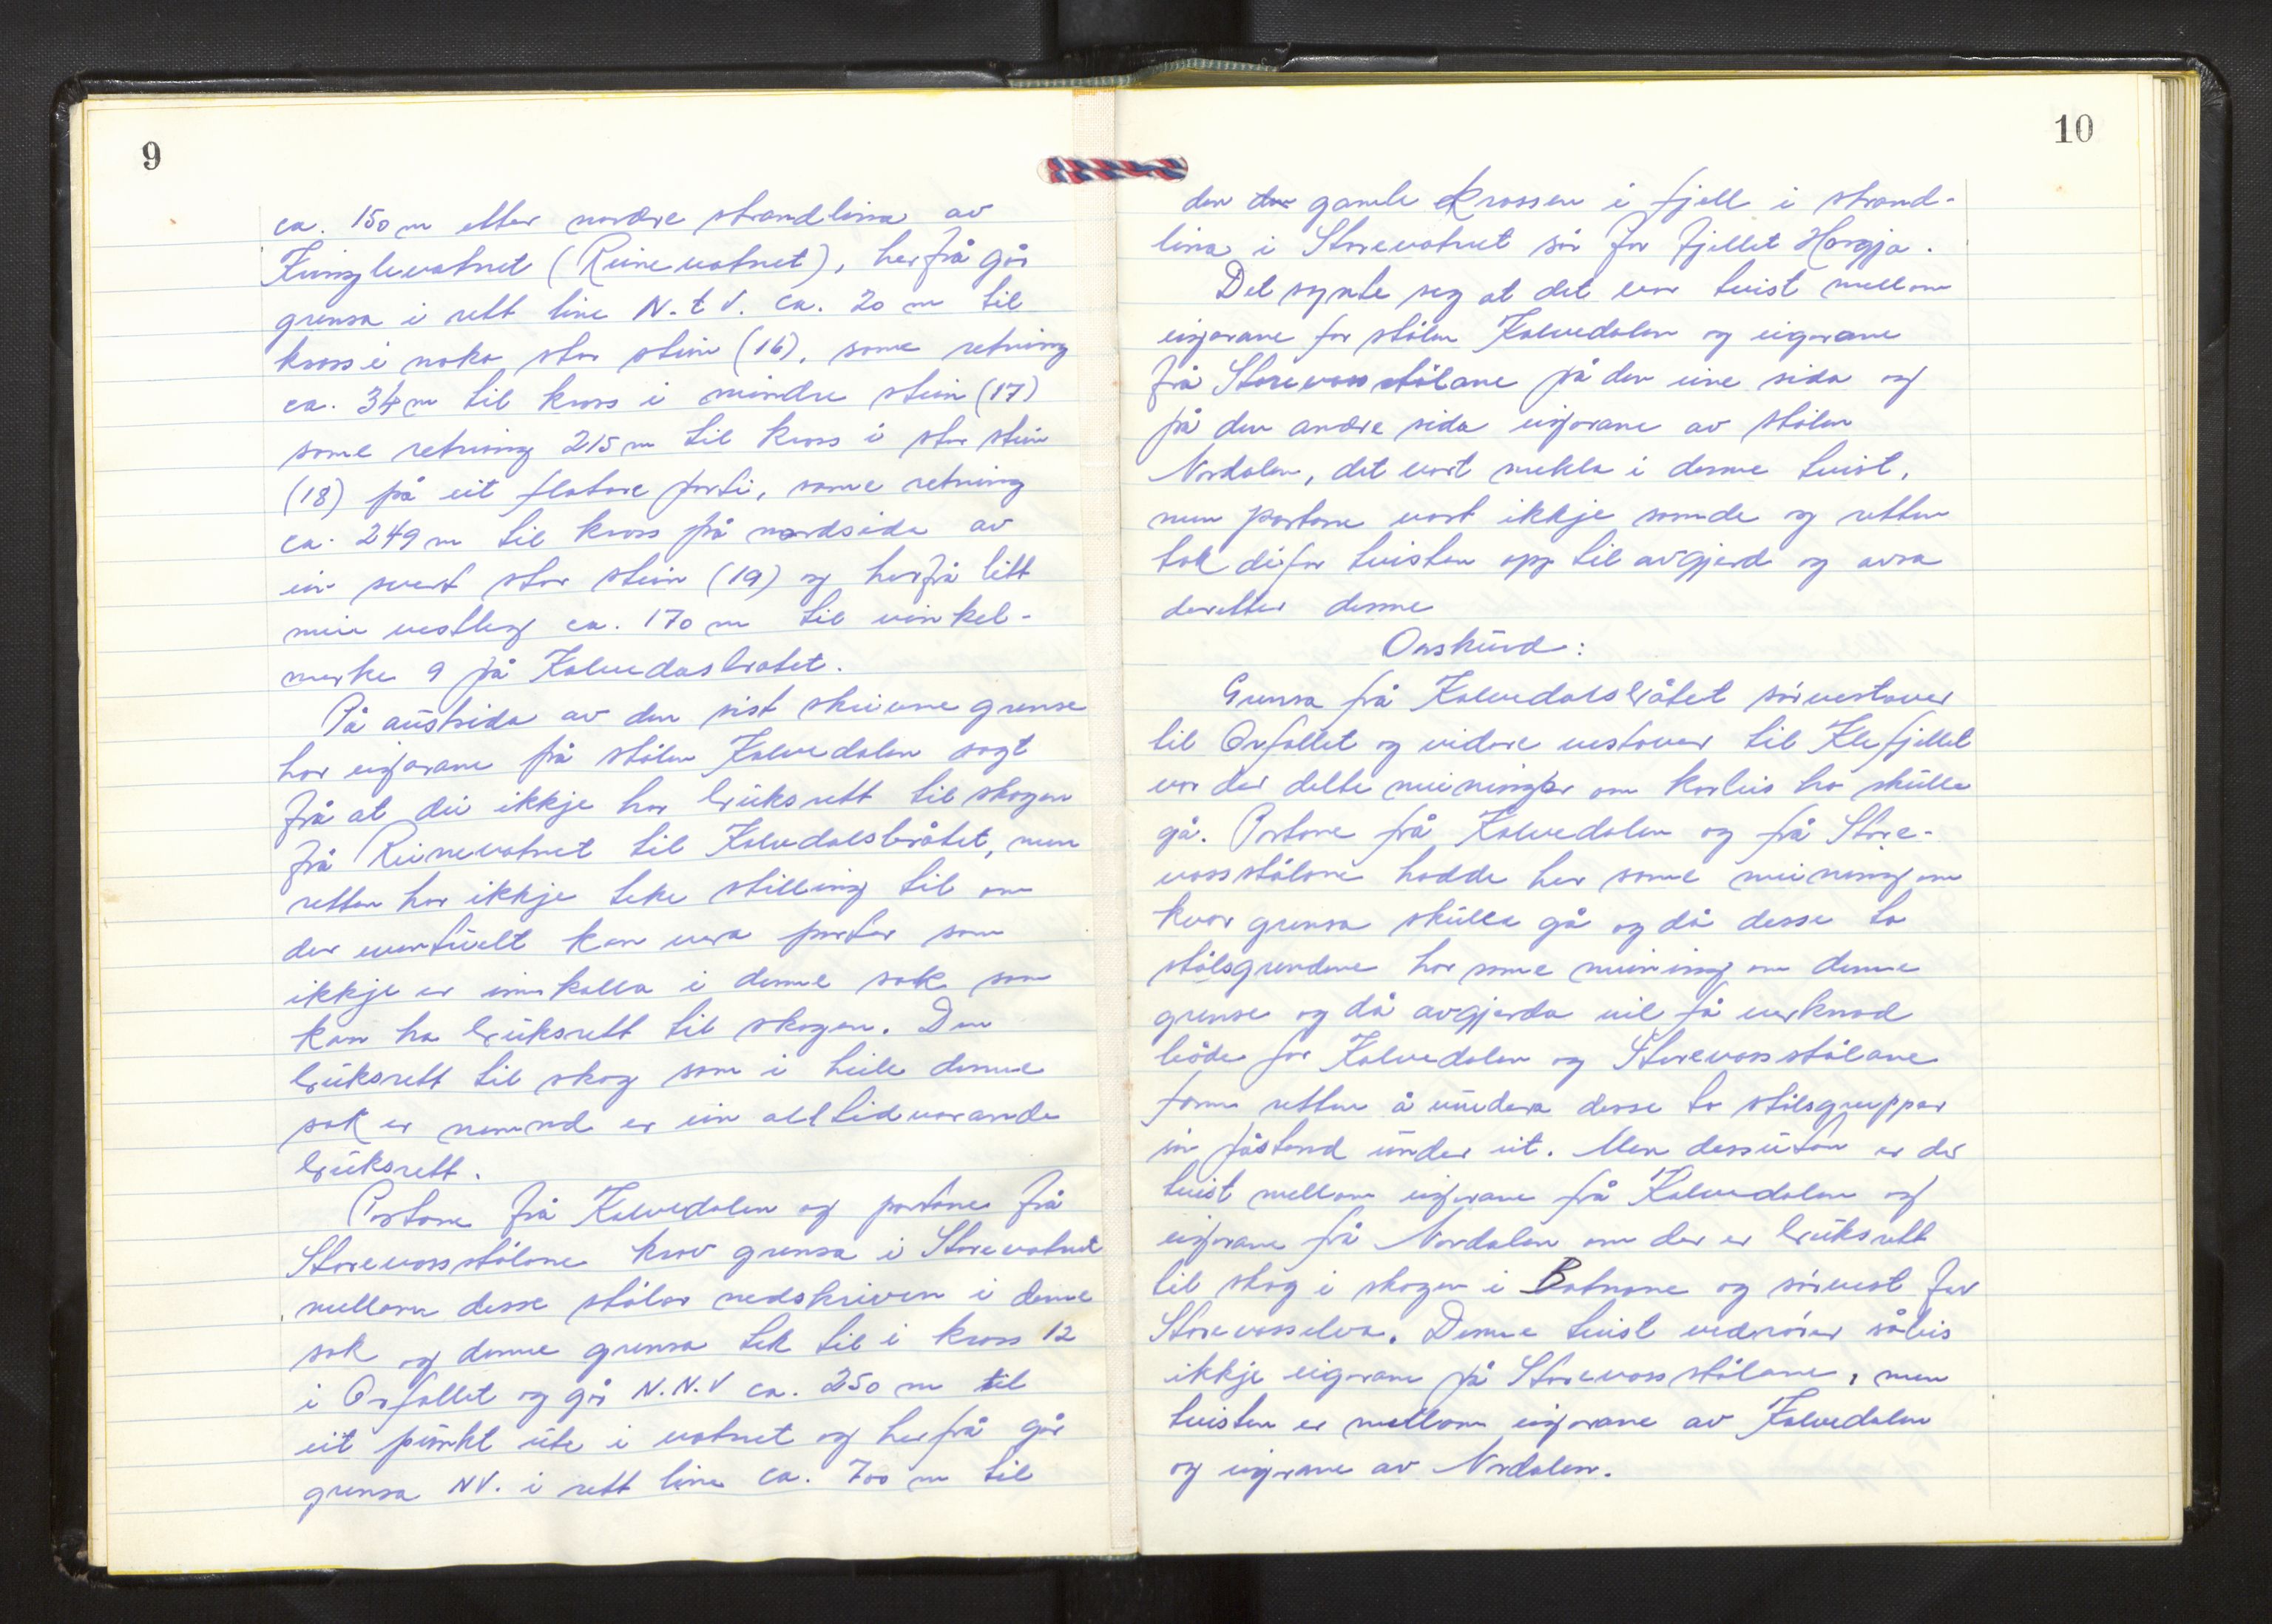 9
ca. 150 m etter nordre strandlina av
Kringlevatnet (Reinevatnet), herfrå går
grensa i rett line N.t V. ca. 20 m til
kross i noko stor stein (16), same retning
ca. 34 m til kross i mindre stein (17)
same retning 215 m til kross i stor stein
(18) på eit flatare parti, same retning
ca. 249 m til kross på nordsida av
ein svert stor stein (19) og herfrå litt
meir vestleg ca. 170 m til vinkel-
merke 9 på Kalvedasbrotet.
På austsida av den sist skrivne grense
har eigarane frå stølen Kalvedalen sagt
frå at dei ikkje har bruksrett til skogen
frå Reinevatnet til Kalvdalsbråtet, men
retten har ikkje teke stilling til om
der eventuelt kan vera partar som
ikkje er innkalla i denne sak som
kan ha bruksrett til skogen. Den
bruksrett til skog som i heile denne
sak er nemnd er ein alltidvarande
bruksrett.
Partane frå Kalvedalen og partane frå
Storevasstølane krov grensa i Storevatnet
mellom desse stølar nedskriven i denne
sak og denne grensa tek til i kross 12
i Orfallet og går N.N.V ca. 250 m til
eit punkt ute i vatnet og herfrå går
grensa NV. i rett line ca. 700 m til
10
den gamle krossen i fjell i strand-
lina i Storevatnet sør for fjellet Horgja.
Det synte seg at det var tvist mellom
eigarane for stølen Kalvedalen og eigarane
frå Storevasstølane på den eine sida og
på den andre sida eigarane av stølen
Nordalen, det vart mekla i denne tvist,
men partane vart ikkje samde og retten
tok difor tvisten opp til avgjerd og avsa
deretter denne
Orskurd:
Grensa frå Kalvedalsbråtet sørvestover
til Orfallet og vidare vestover til Klefjellet
var der delte meiningar om korleis ho skulle
gå. Partane frå Kalvedalen og frå Store-
vasstølane hadde her same meining om
kvar grensa skulle gå og då desse to
stølsgrendene har same meining om denne
grense og då avgjerda vil få verknad
både for Kalvedalen og Storevasstølane
fann retten å vurdera desse to stølsgruppar
sin påstand under eit. Men dessutan er der
tvist mellom eigarane frå Kalvedalen og
eigarane frå Nordalen om der er bruksrett
til skog i skogen i Botnane og sørvest for
Storevasselva. Denne tvist vedrører såleis
ikkje eigarane på Storevasstølane, men
tvisten er mellom eigarane av Kalvedalen
og eigarane av Nordalen.